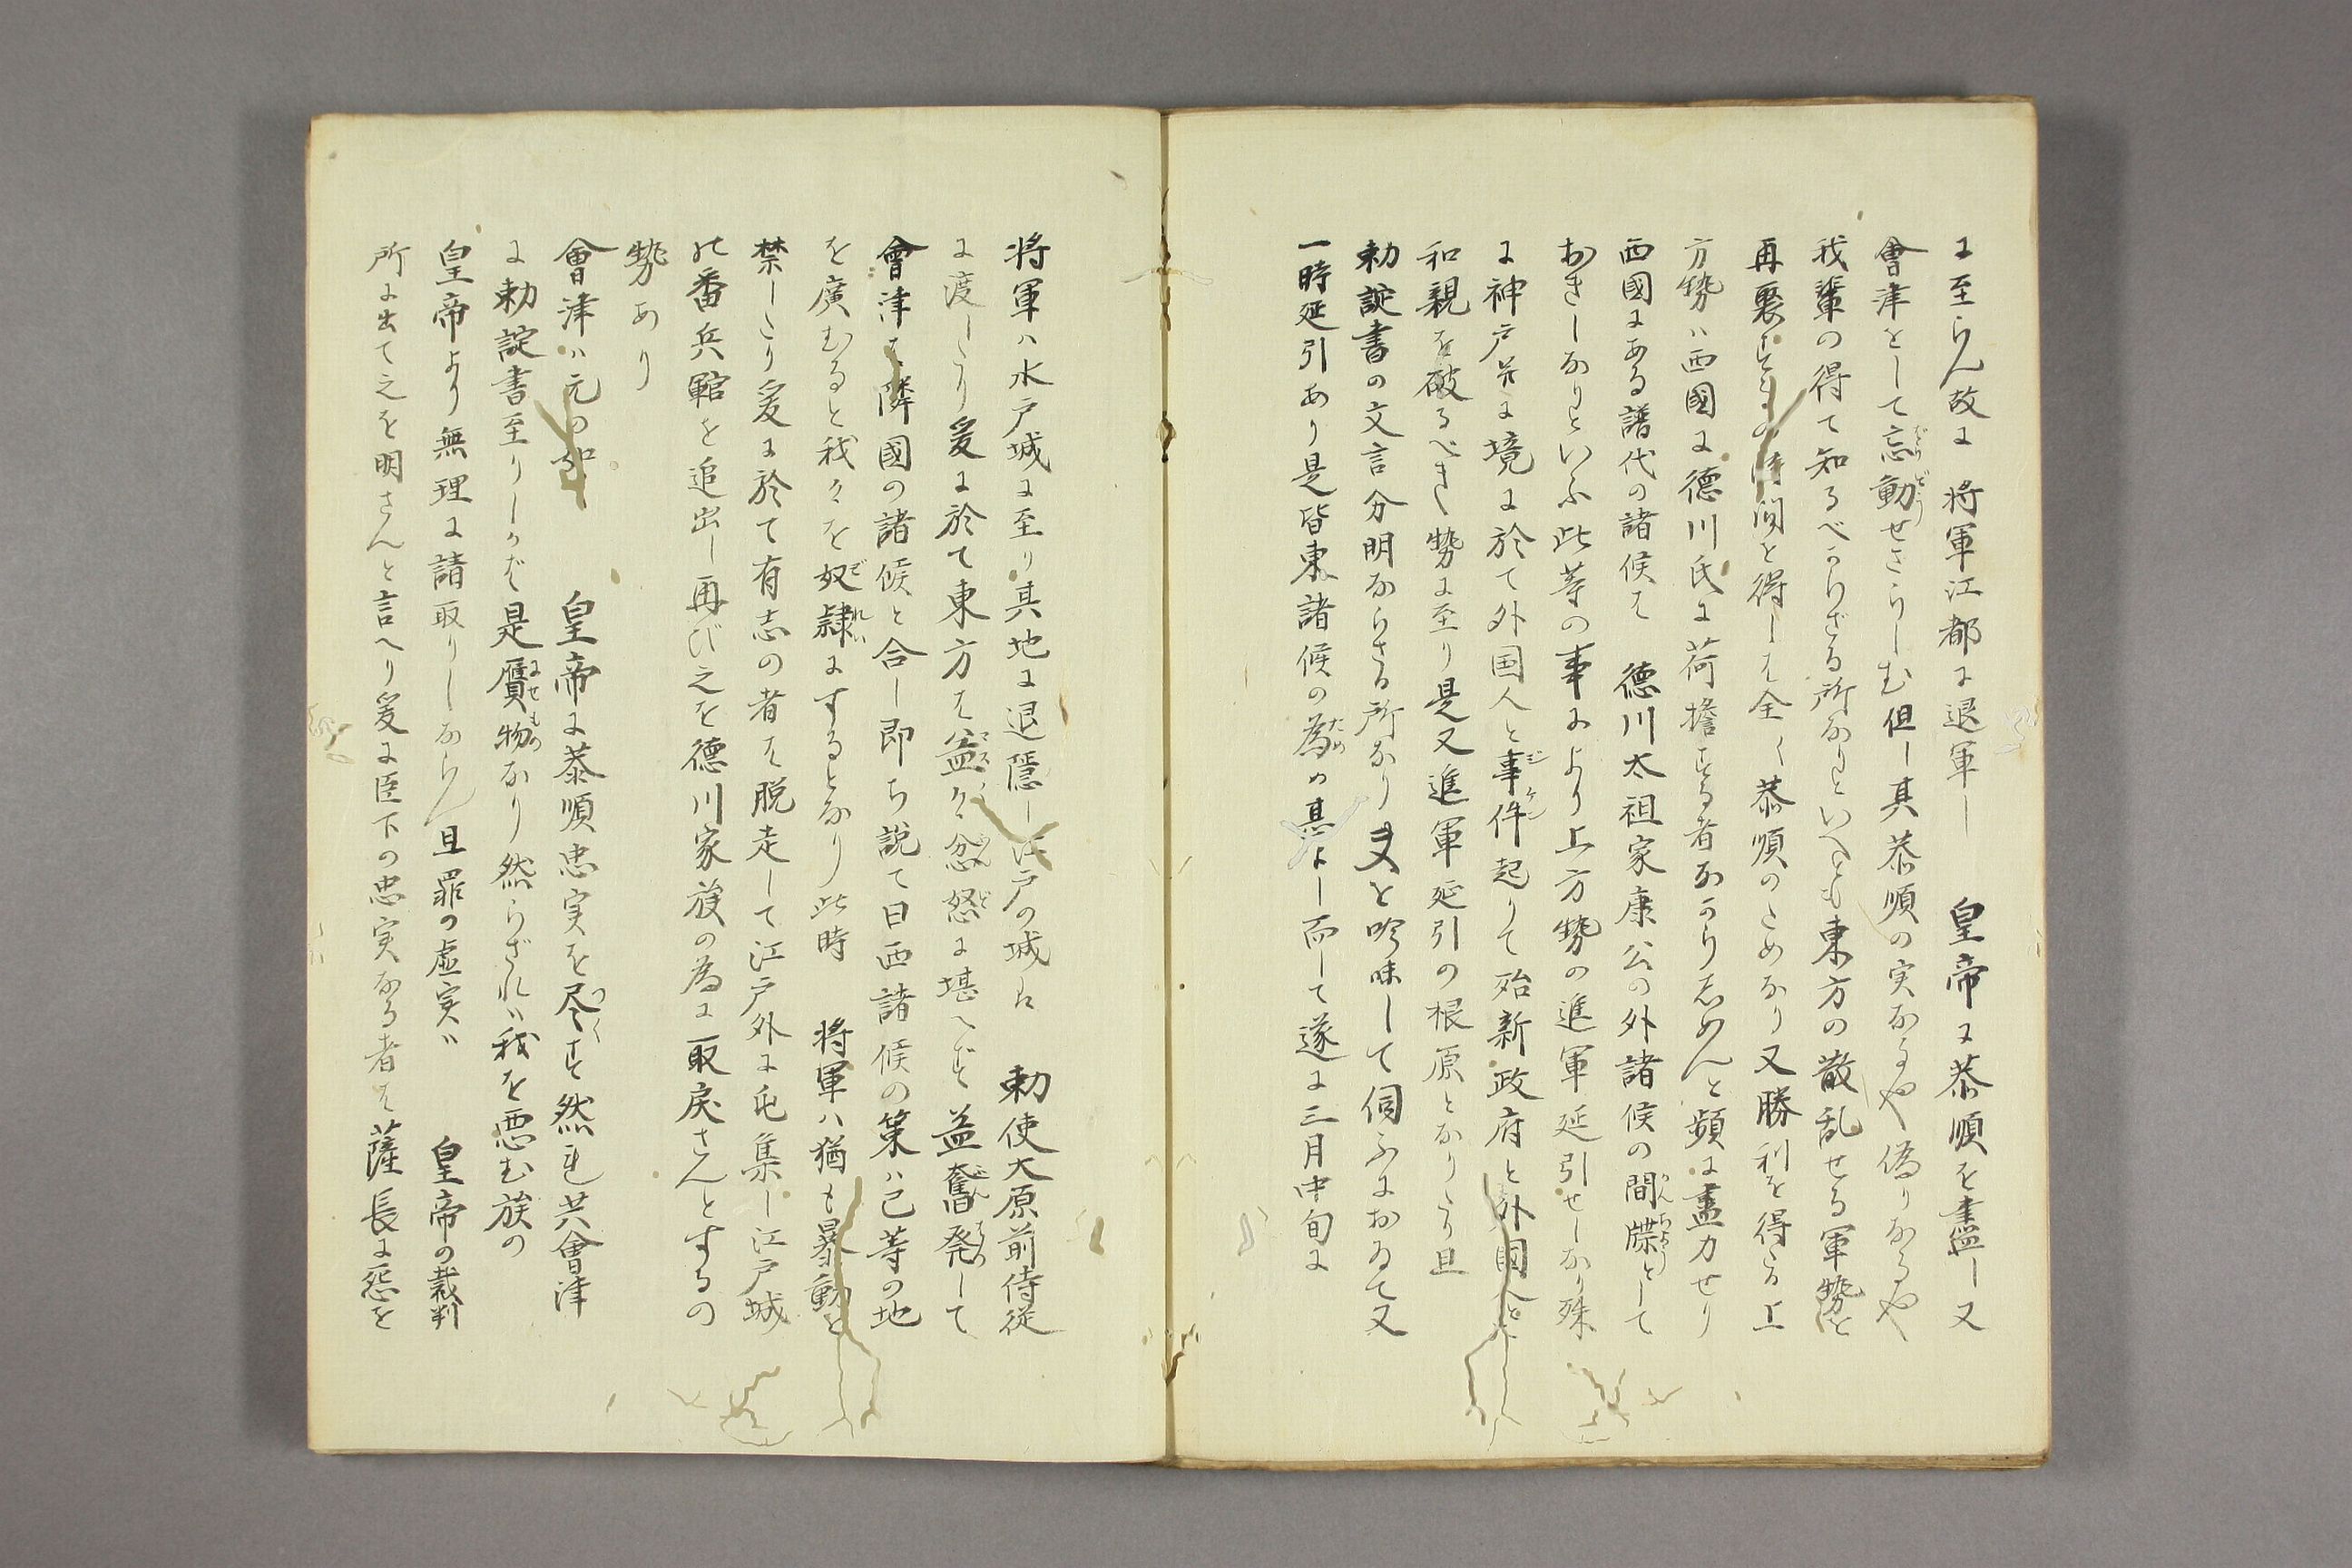 に至らん故に　将軍江都に退軍し　皇帝に恭順を盡し又
會津をして忘動せさらしむ但し其恭順の実なるや偽りなるや
我輩の得て知るべからざる所なりといへとも東方の散乱せる軍勢を
再裏するの時間を得しは全く恭順のためなり又勝利を得たる上
方勢ハ西國に徳川氏に荷擔する者なからしめんと頻に盡力せり
西國にある譜代の諸候は　徳川太祖家康公の外諸候の間牒として
おきしなりといふ此等の事により上方勢の進軍延引せしなり殊
に神戸并に境に於て外国人と事件起りて殆新政府と外國人と
和親を破るべき勢に至り是又進軍延引の根原となりたり且
勅諚書の文言分明ならさる所なり又を吟味して伺ふにおゐて又
一時延引あり是皆東諸候の為め甚よし而して遂に三月中旬に
将軍ハ水戸城に至り其地に退隠し江戸の城は　勅使大原前侍従
に渡したり爰に於て東方は益々忿怒に堪へず益奮発して
會津は隣國の諸候と合し即ち説て曰西諸候の策ハ己等の地
を廣むると我々を奴隷にするとなり此時　将軍ハ猶も暴動を
禁したり爰に於て有志の者は脱走して江戸外に屯集し江戸城
の番兵軍を追出し再び之を徳川家族の為に取戻さんとするの
勢あり
會津ハ元の如　皇帝に恭順忠実を尽す然れ共會津
に勅諚書至りしかど是贋物なり然らざれバ我を悪む族の
皇帝より無理に請取りしならん且罪の虚実ハ　皇帝の裁判
所に出て之を明さんと言へり爰に臣下の忠実なる者は薩長に怨を